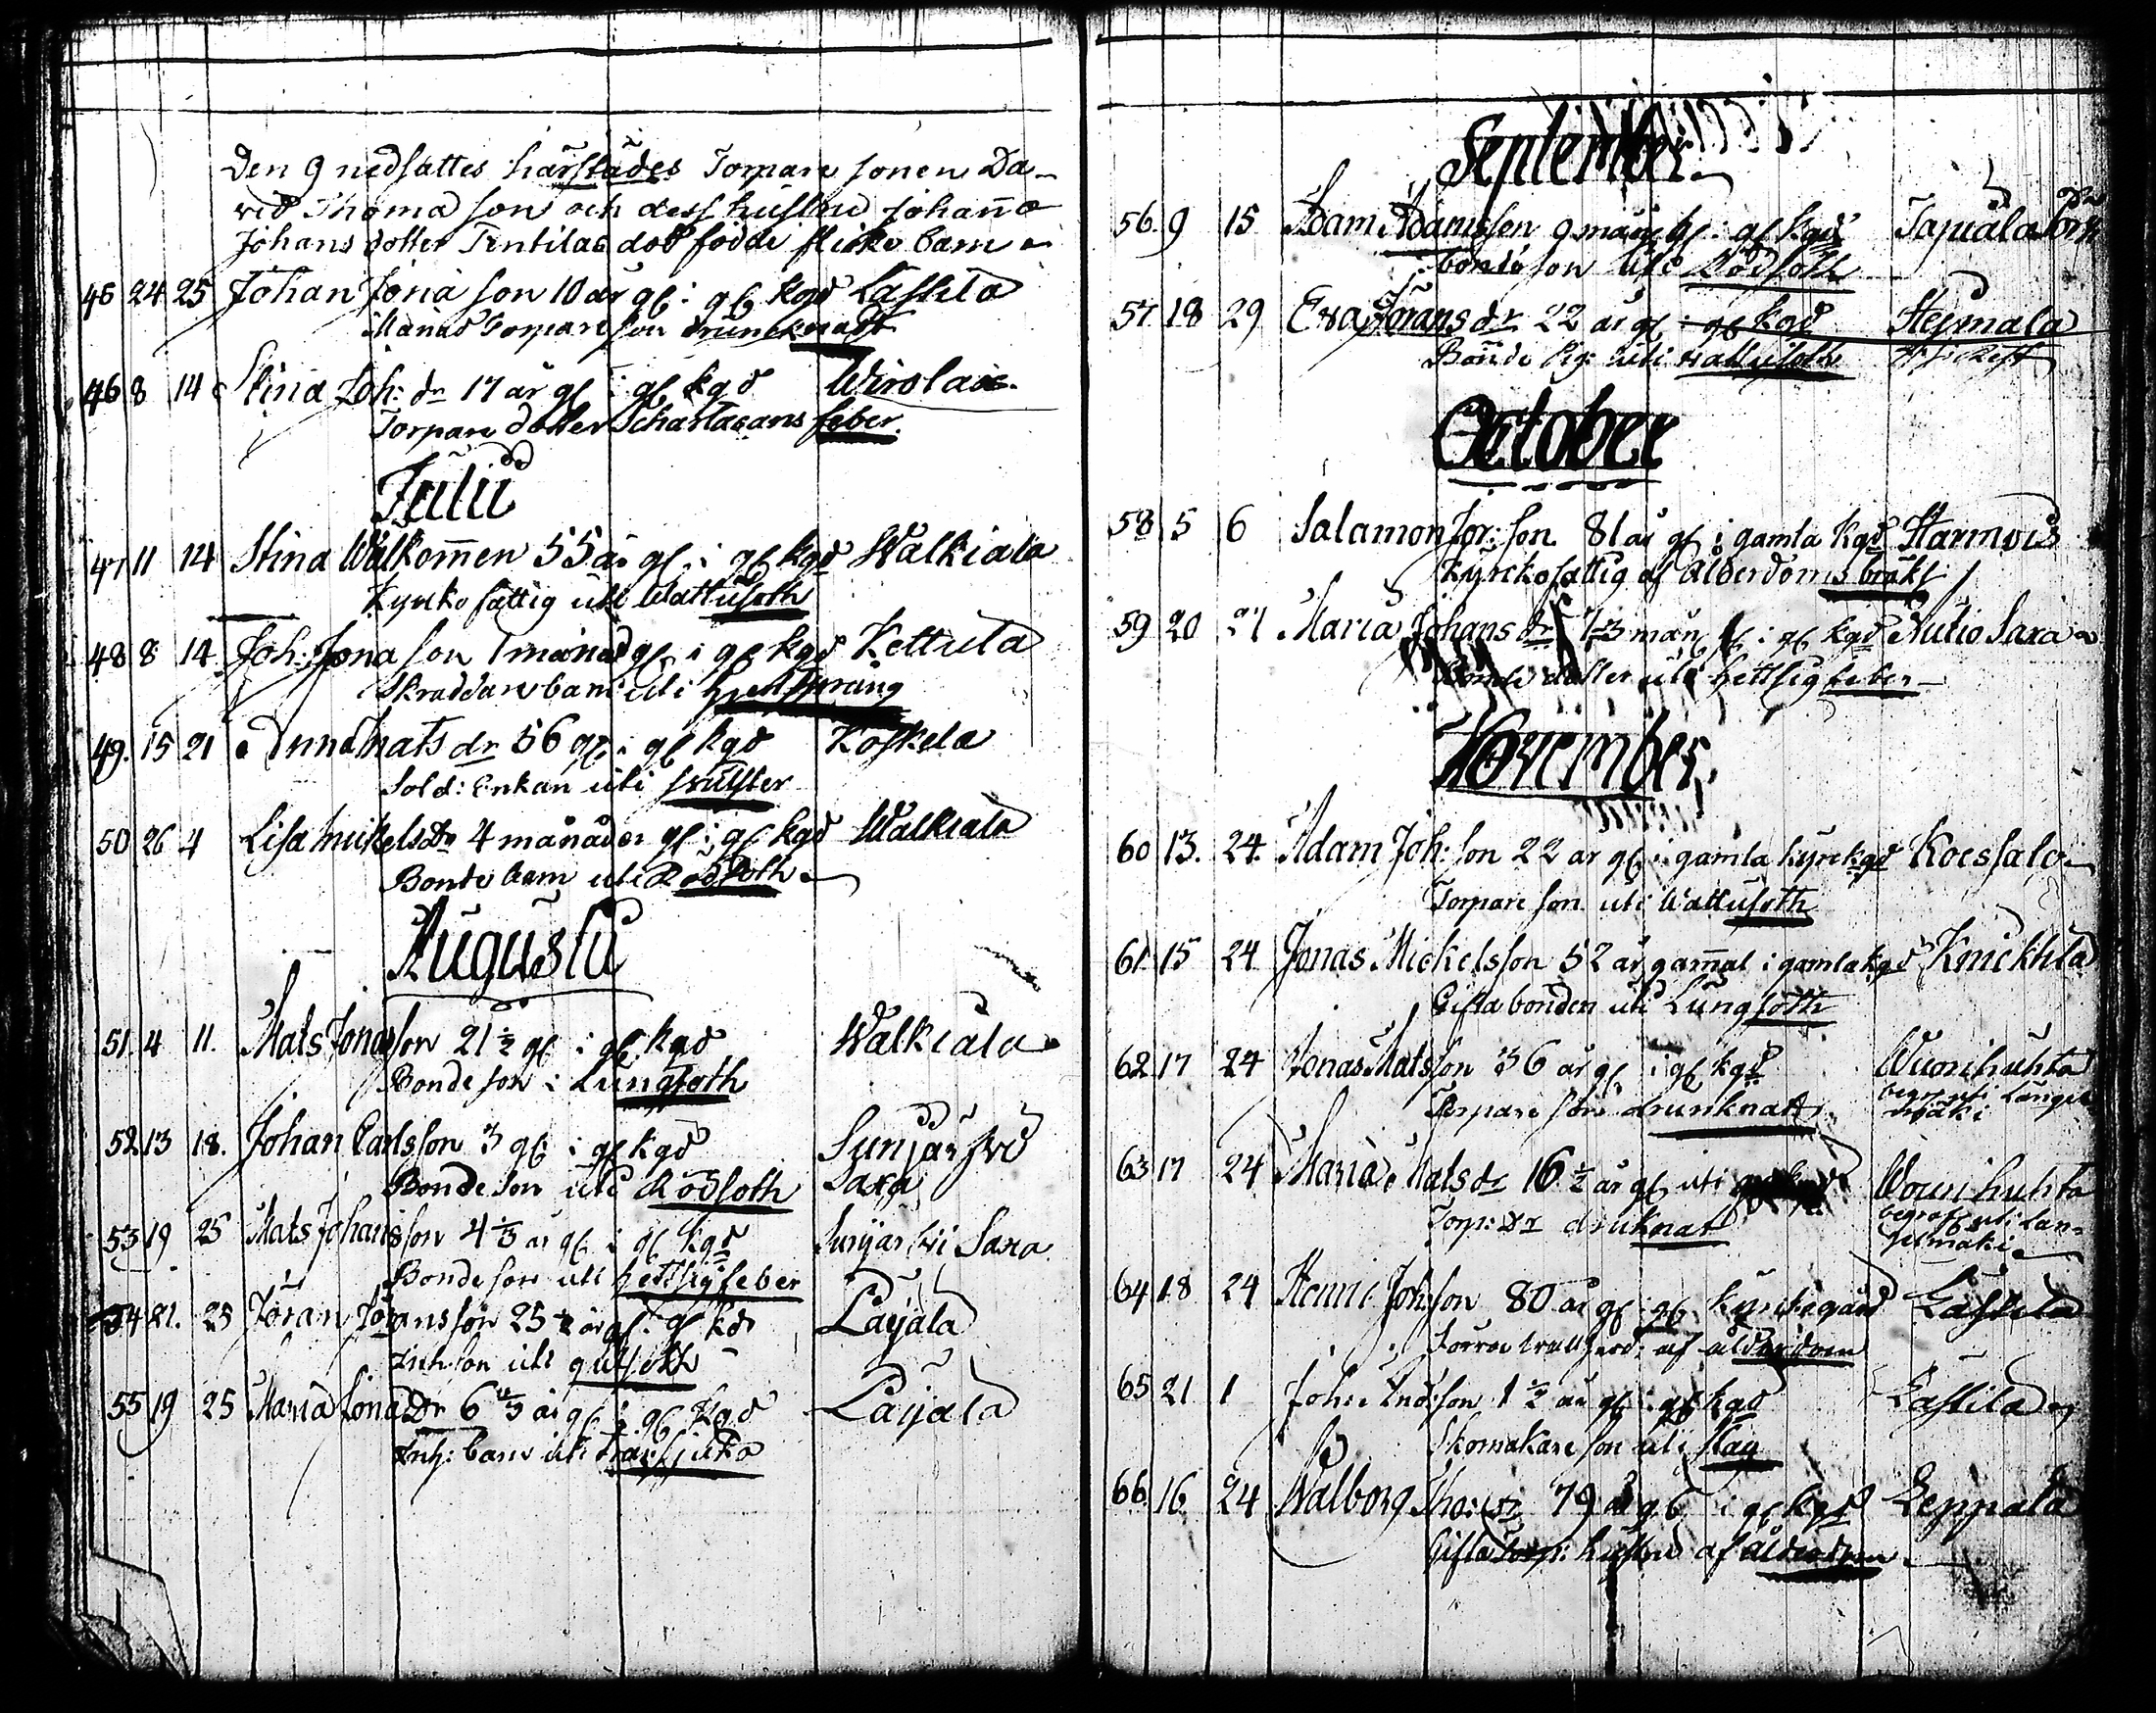 Den 9 nedsattes härstädes Torpare sonen Da-
vid Thoma son och dess hustru Johanna
Johans dotter Tentilas död födde flicke barn
45 24 25 Johan Jona son 10 år gl: i gl kgd Lastila
Torpare son drunknadt
46 8 14 Stina Joh: dr 17 år gl i gl kgd Wirolax
Torpare dotter Scharlacans feber.
Julii
47 11 14 Stina Wälkommen 55 år gl i gl kgd Walkiala
Kyrcko fattig uti Wattusoth
48 8 14 Joh: Jona son 1 månad gl i gl kgd Kettula
Skraddare barn uti
49. 15 21 Anna Mats dr 56 gl i gl kgd Koskela
Sold: Enkan uti
50 26 4 Lisa Mickelsdr 4 månader gl i gl kgd Walkiala
Bonde barn uti Rödsoth
Augusti
51. 4 11. Mats Jonasson 21 ½ gl i gl kgd Walkiala
Bonde son i Lungsoth
52 13 18. Johan Carlsson 3 gl i gl kgd Surjärfvi
Bonde son uti Rödsoth Saxa
53 19 25 Mats Johansson 4 år gl i gl kgd Surjärfvi Saxa
Bonde son uti hettsig feber
54 21. 25 Jöran Jöransson 25 ½ år gl i gl kd Layala
Inh son uti gulsoth
55 19 25 Maria Jona Dr 6 år gl i gl kgd Layala
Inh: barn uti
September
56. 9 15 Adam Adamsson 9 mån gl i gl kgd Tapiala
bonde son uti Rödsoth
57. 18 29 Eva Jörans dr 22 år gl i gl kgd Hejmala
Bonde Pig: uti wattusoth
October
58 5 6 Salamon Jör: son 81 år gl i gamla kgd Harmois
Kyrckofattig af ålderdoms bräkl
59 20 27 Maria Johans dr mån gl i gl kgd Autio Saxa
Bonde dotter uti hettsig feber
November.
60 13. 24. Adam Joh: son 22 år gl i gamla kyrckgd Koessalo
Torpare son uti Wattusoth
61. 15 24 Jonas Mickelsson 52 år gammal i gamla kgd Knickhila
Gifta bonden uti Lungsoth
62 17 24 Jonas Matsson 36 år gl i gl kgd Wuorihuhta
Torpare son drunknatt begr: uti Längel
mäki
63 17 24 Maria Mats dr 16 ½ år gl uti Wourihuhta
Torp: Dr druknat begrafv: uti Lan-
gelmäki
64 18 24 Henric Johsson 80 år gl i gl kyrckogård Lastila
af ålderdom
65 21 1 Joh: And:son 1 ½ år gl i gl kgd Lastila
Skomakare son uti slag
66. 16 24 Walborg Tho: dr 79 år gl i gl kgd Leppala
Gifta Torp: hustru af ålderdom